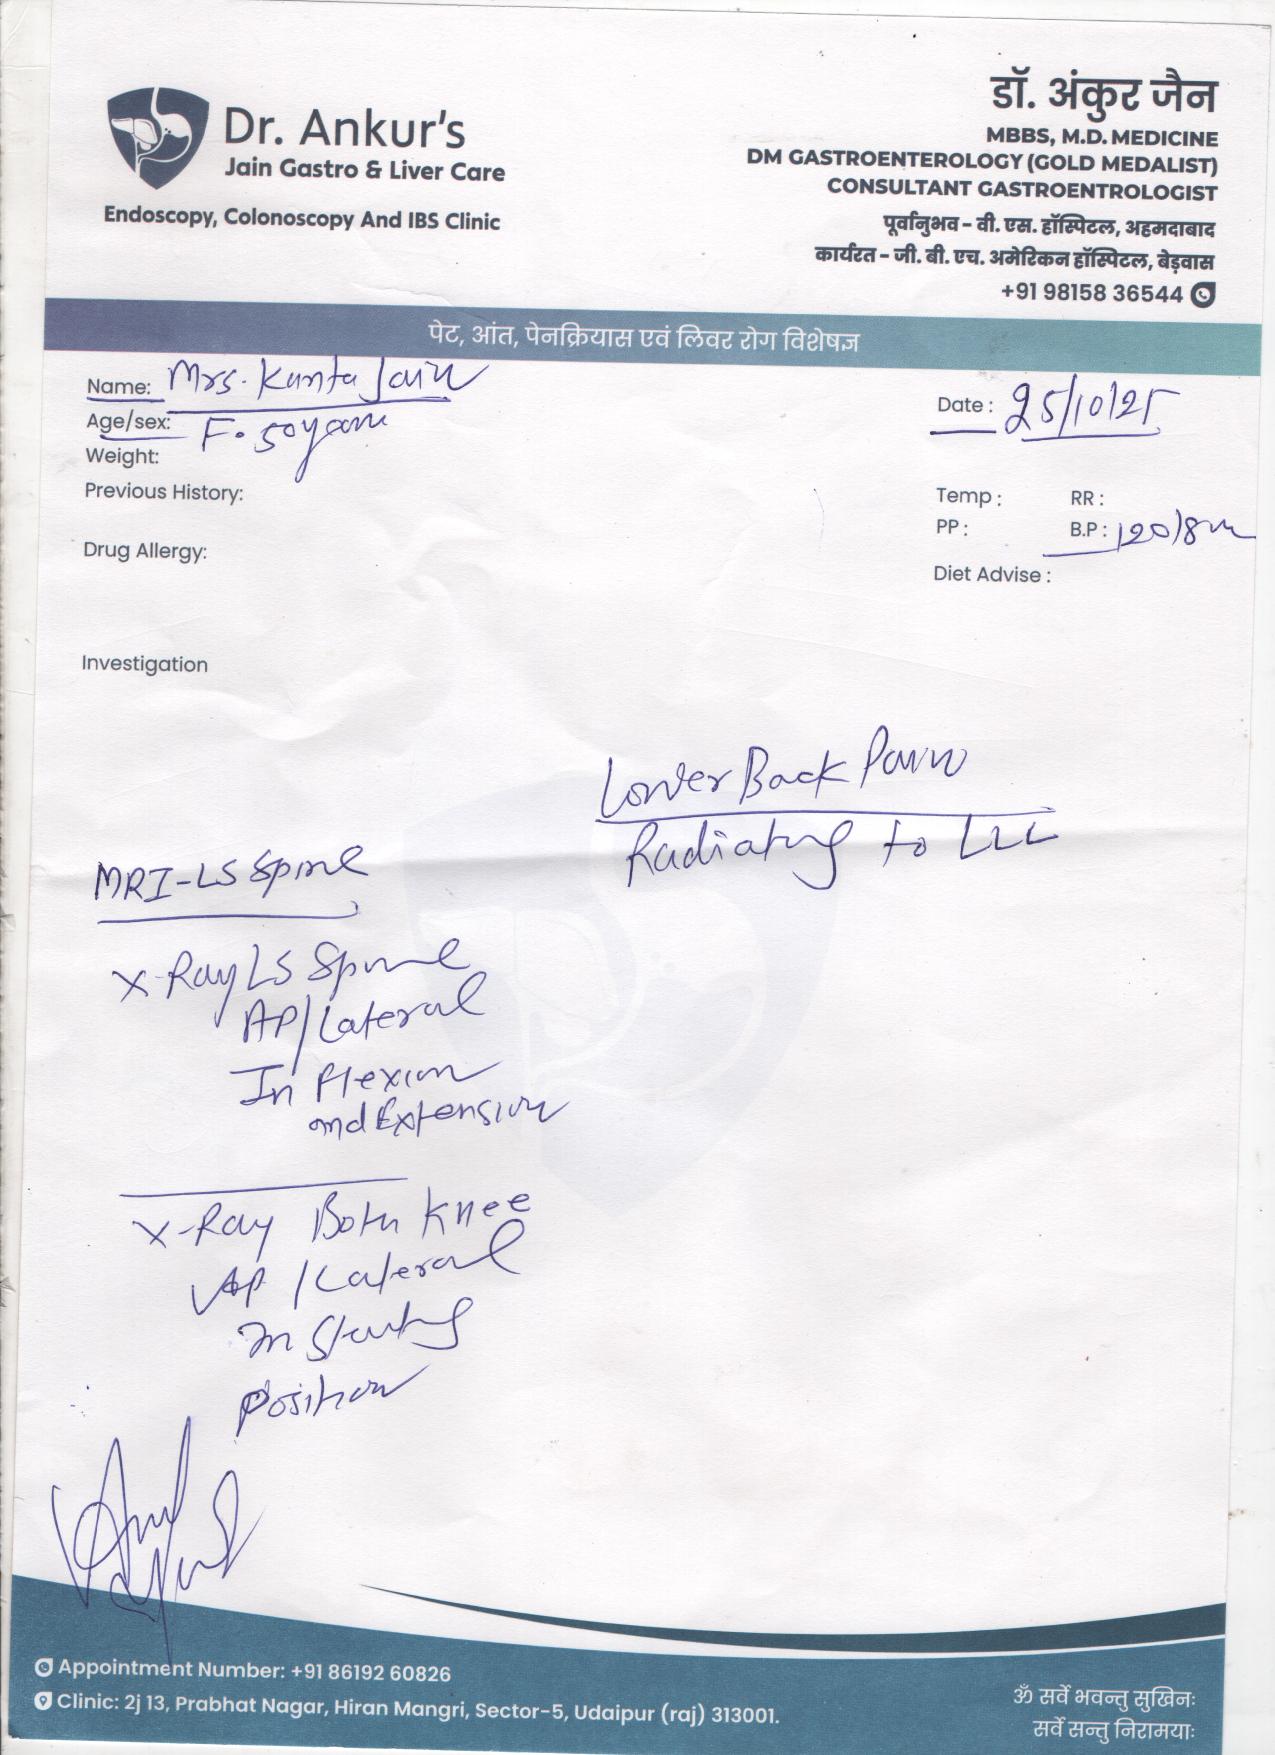 Dr. Ankur's
Jain Gastro & Liver Care
Endoscopy, Colonoscopy And IBS Clinic
डॉ. अंकुर जैन
MBBS, M.D. MEDICINE
DM GASTROENTEROLOGY (GOLD MEDALIST)
CONSULTANT GASTROENTROLOGIST
पूर्वानुभव – वी. एस. हॉस्पिटल, अहमदाबाद
कार्यरत – जी. बी. एच. अमेरिकन हॉस्पिटल, बेड़वास
+91 98158 36544
पेट, आंत, पेनक्रियास एवं लिवर रोग विशेषज्ञ
Name: Mrs. Kanta Jain
Date: 25/10/25
Age/sex: F. 50
Weight:
Previous History:
Temp: RR:
PP: B.P: 120/8
Drug Allergy:
Diet Advise:
Investigation
Lower Back Pain
Radiating to
MRI-LS Spine
X-Ray LS Spine
AP/Lateral
In Flexion
and Extension
X-Ray Both Knee
AP / Lateral
In
Position
Appointment Number: +91 86192 60826
Clinic: 2j 13, Prabhat Nagar, Hiran Mangri, Sector-5, Udaipur (raj) 313001.
ॐ सर्वे भवन्तु सुखिनः
सर्वे सन्तु निरामयाः